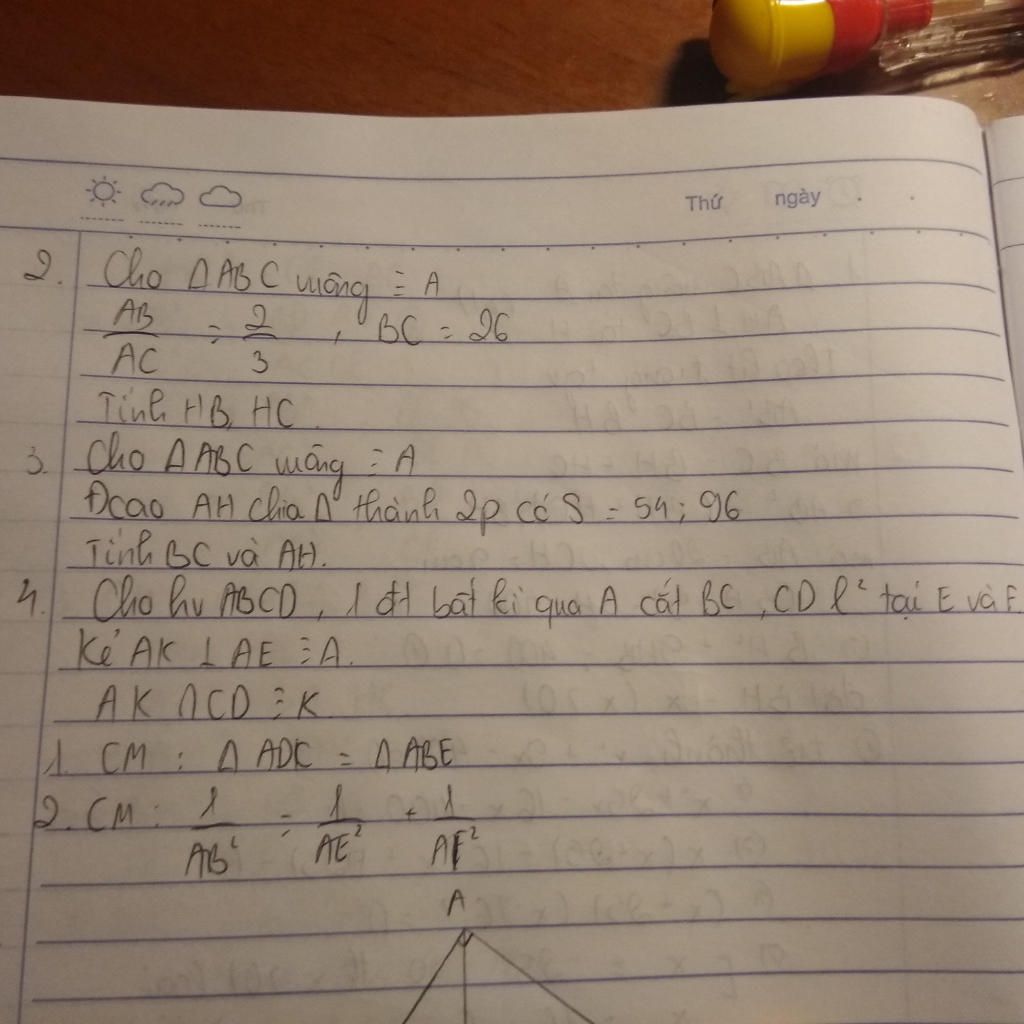 Thứ ngày
2. Cho ΔABC vuông ≡ A
AB/AC = 2/3, BC = 26
Tính HB, HC
3. Cho ΔABC vuông ≡ A
Đcao AH chia Δ thành 2p có S = 54; 96
Tính BC và AH.
4. Cho hv ABCD, 1 đt bất kì qua A cắt BC, CD l² tại E và F
Kẻ AK ⊥ AE ≡ A.
AK ∩ CD ≡ K
1. CM : Δ ADK = Δ ABE
2. CM : 1/AB² = 1/AE² + 1/AF²
A